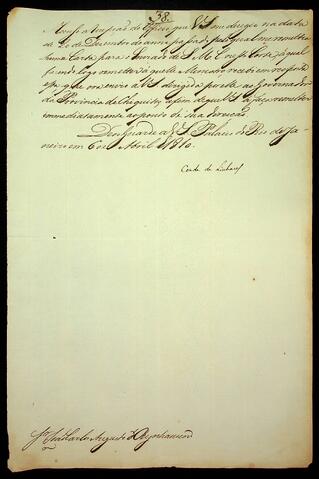 38
Accuso a recepção do Officio que V. S. me dirigio na data
de 20 de Dezembro do anno passado, pelo qual me remetteo
huma Carta para o Enviado de S. M. C. nesta Corte, a qual
fazendo logo remetter à quelle Ministro recebi em resposta
a que remetto a V. S. dirigida por elle ao Governador
da Provincia de Chiquitos, a fim de que V. S. a faça remetter
immediatamente ao ponto de sua direcção.
Deos Guarde a V. S. Palacio do Rio de Ja-
neiro em 6 de Abril de 1810.
Conde de Linhares
Snr. João Carlos Augusto d'Oeynhausen